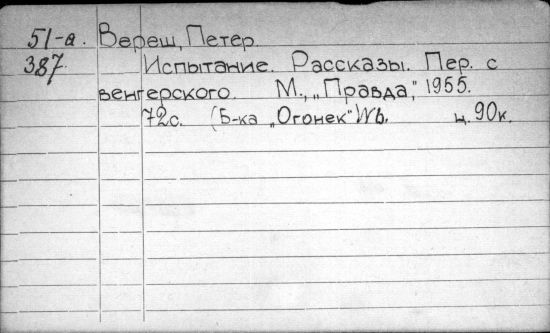 51-а. Вереш, Петер.
387. Испытание. Рассказы. Пер. с
венгерского. М., „Правда," 1955.
72с. (Б-ка „Огонек" №6. ц. 90к.